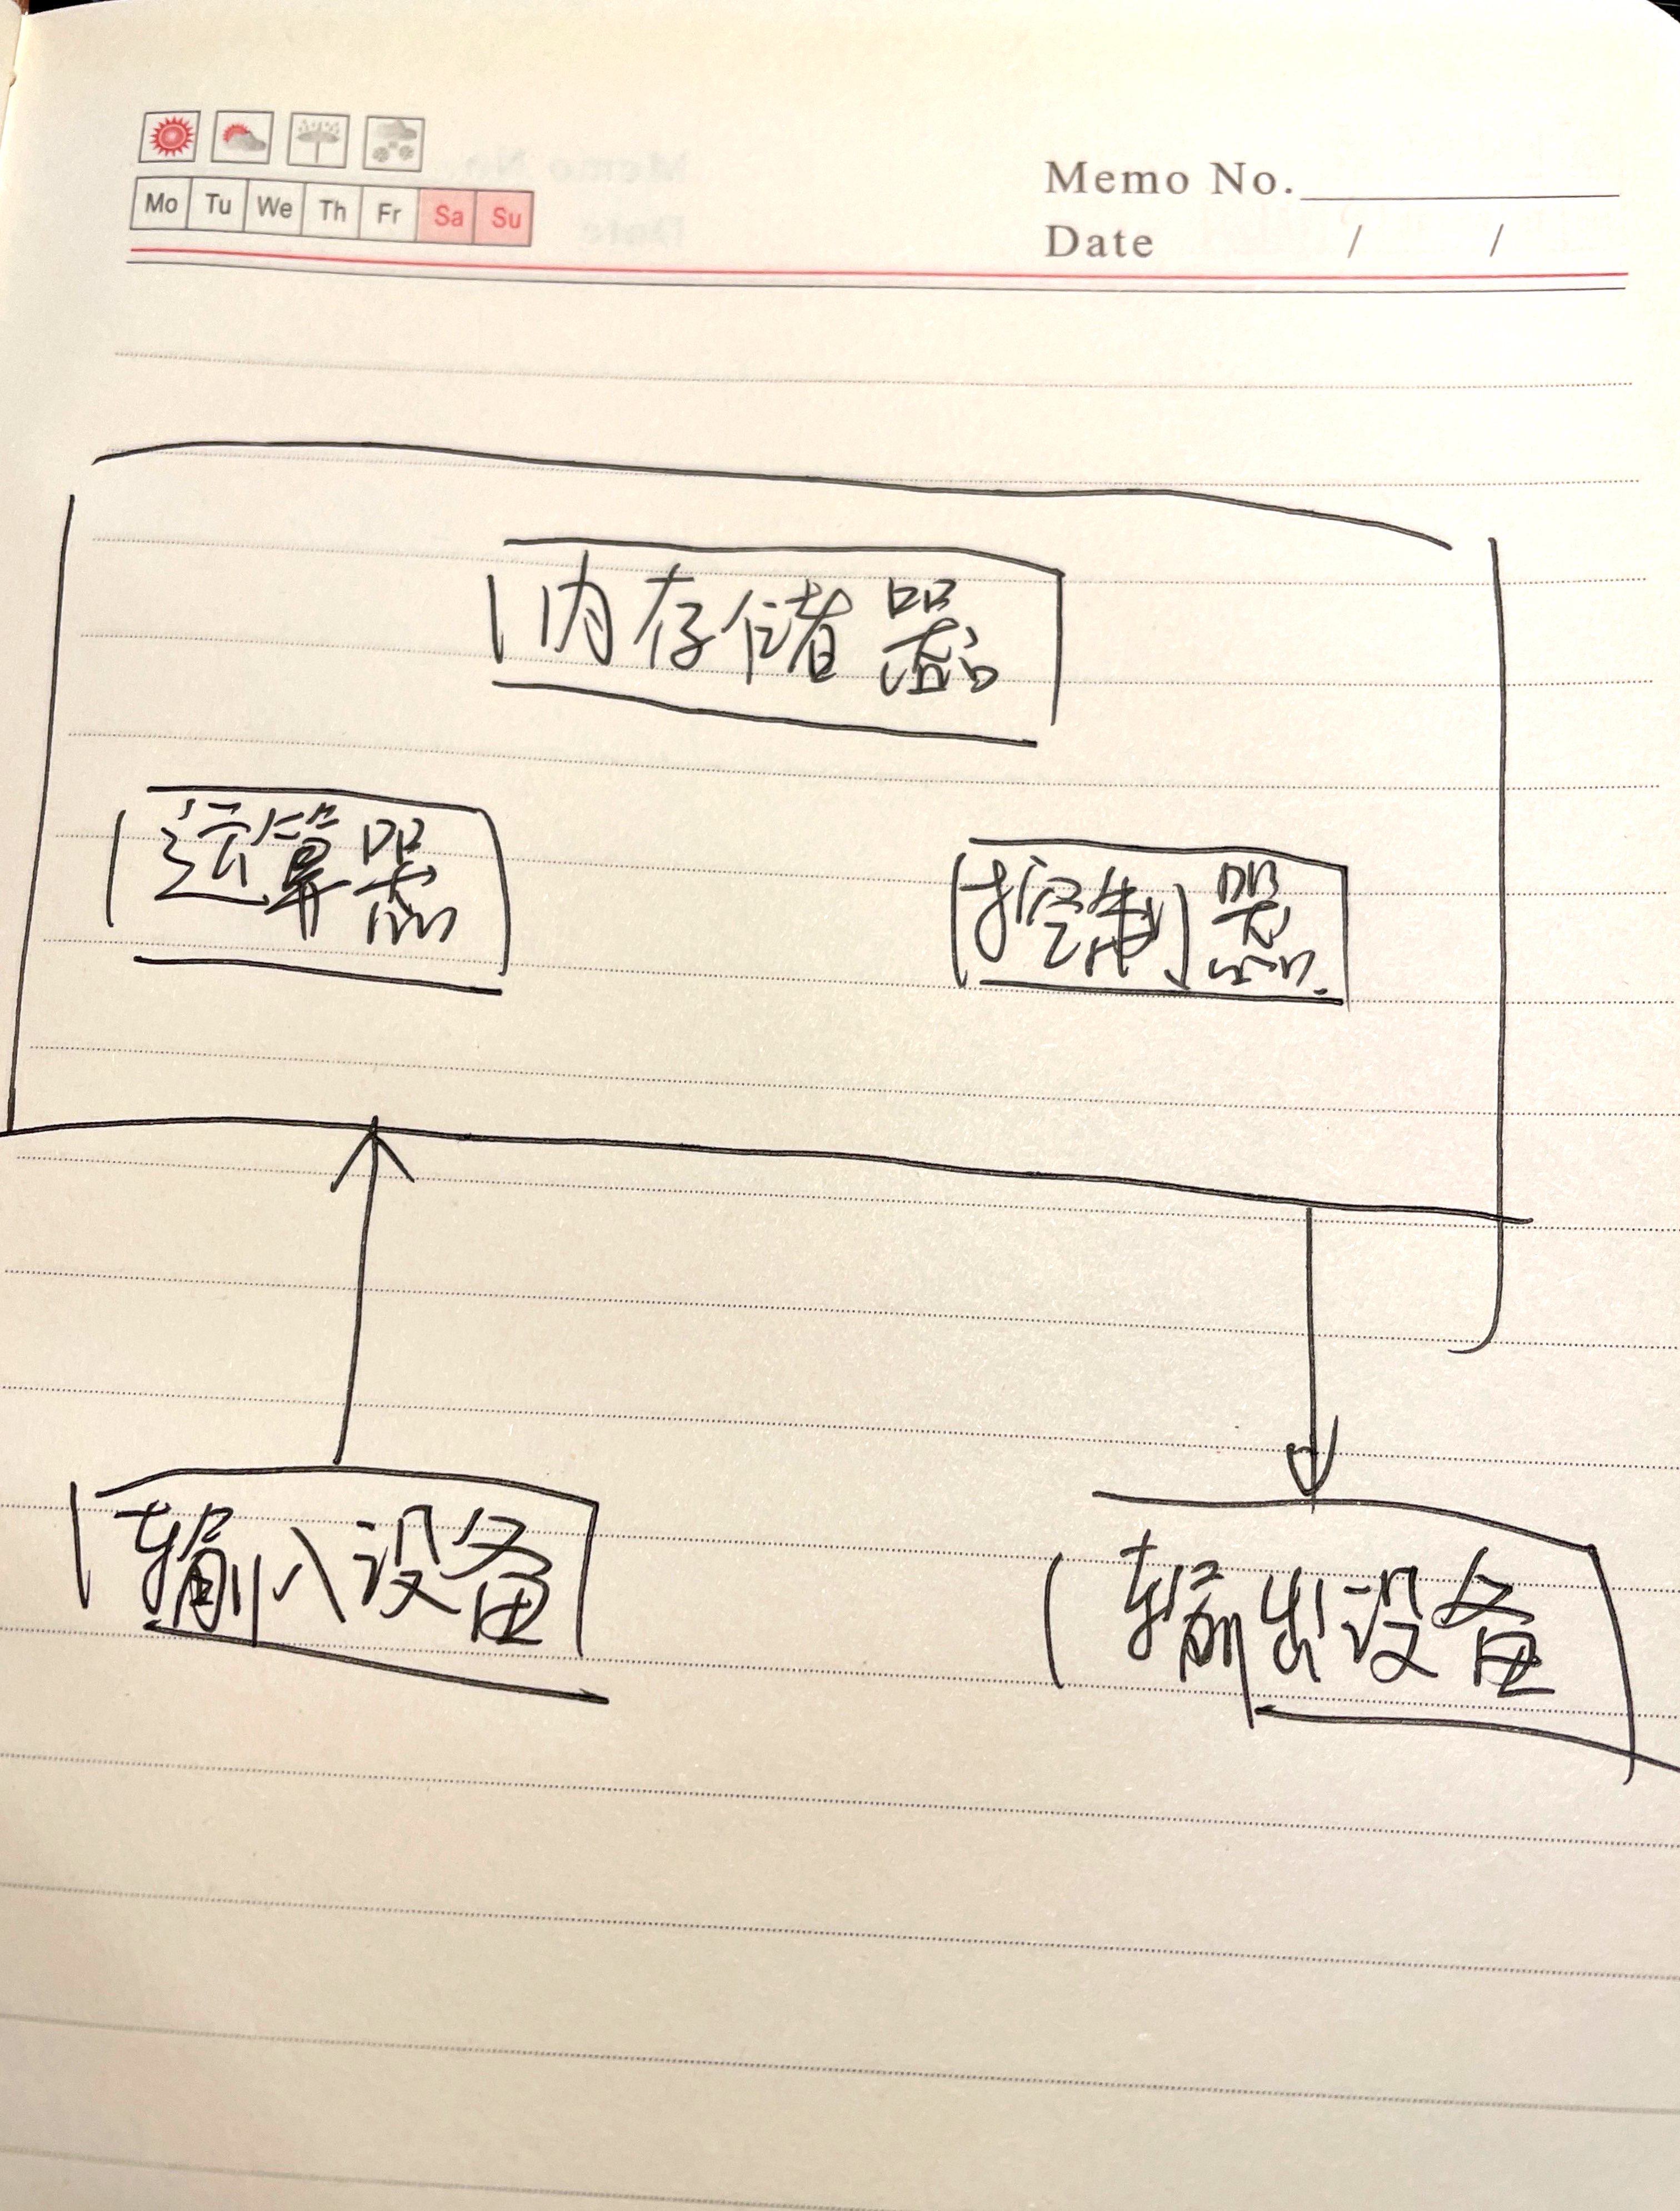 Mo Tu We Th Fr Sa Su
Memo No.
Date / /
内存储器
运算器
控制器
输入设备
输出设备